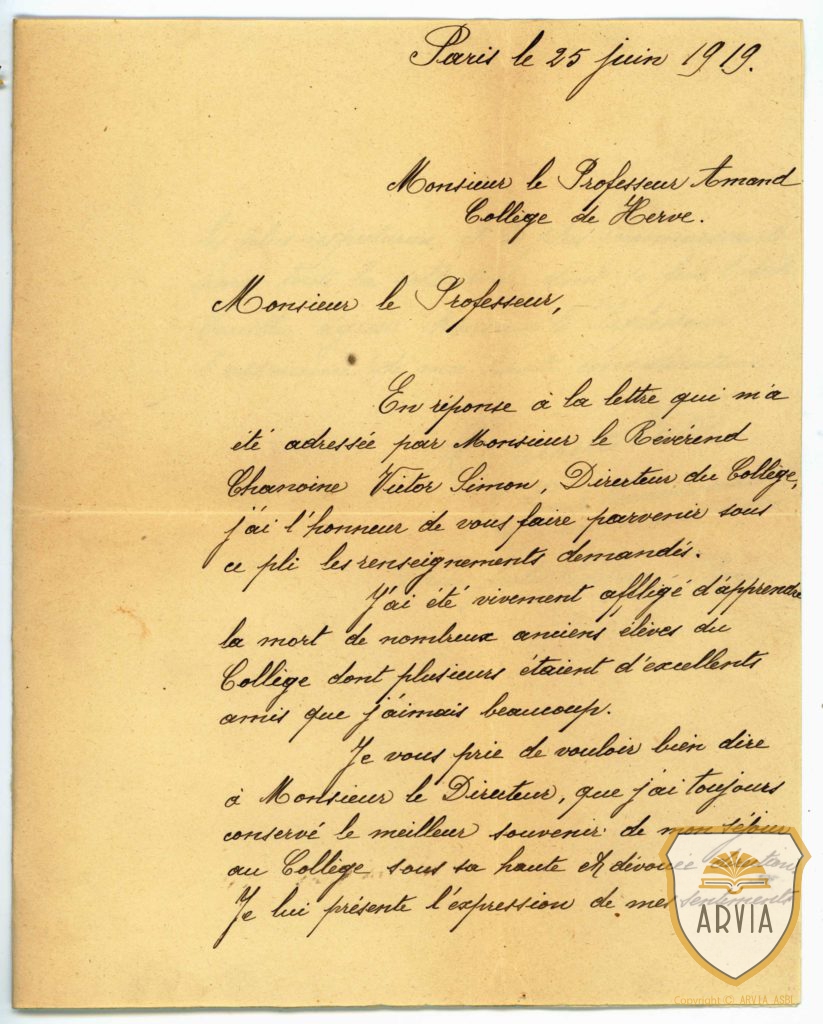 Paris le 25 juin 1919.
Monsieur le Professeur Amand
Collège de Herve.
Monsieur le Professeur,
En réponse à la lettre qui m'a
été adressée par Monsieur le Révérend
Chanoine Victor Simon, Directeur du Collège,
j'ai l'honneur de vous faire parvenir sous
ce pli les renseignements demandés.
J'ai été vivement affligé d'apprendre
la mort de nombreux anciens élèves du
Collège dont plusieurs étaient d'excellents
amis que j'aimais beaucoup.
Je vous prie de vouloir bien dire
à Monsieur le Directeur, que j'ai toujours
conservé le meilleur souvenir de mon séjour
au Collège sous sa haute et dévouée direction
Je lui présente l'expression de mes sentiments
ARVIA
Copyright © ARVIA ASBL